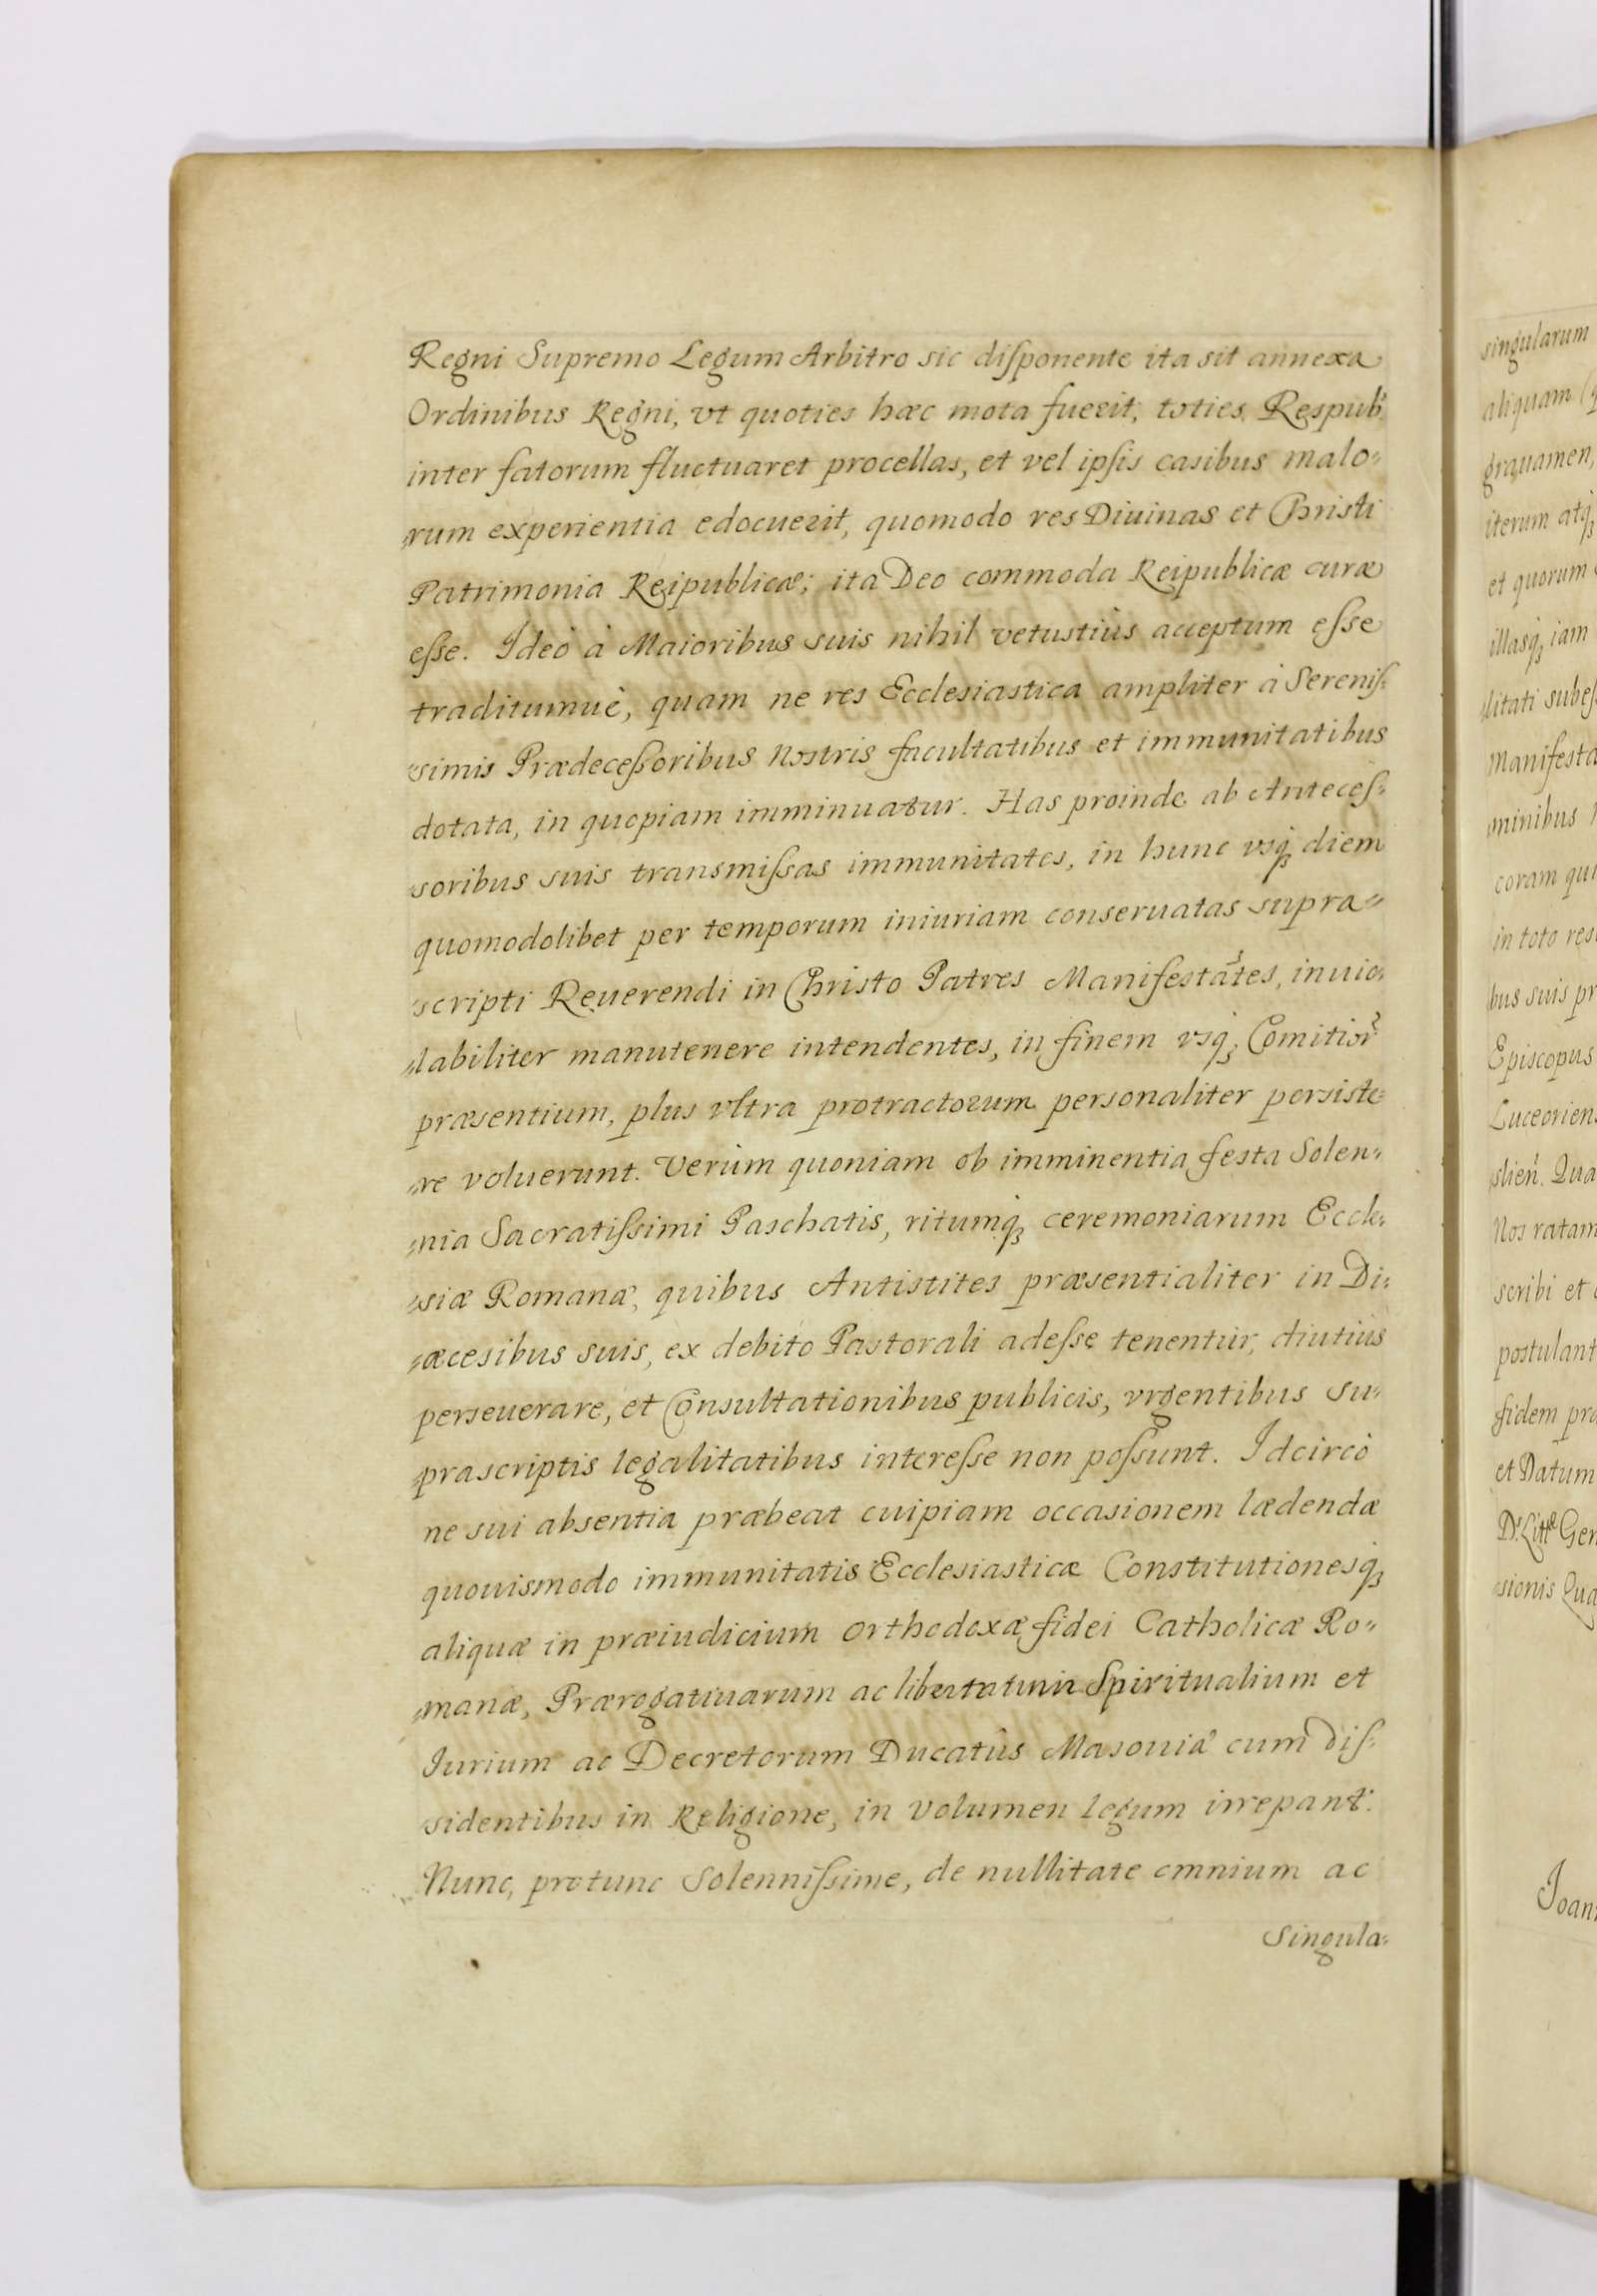 Regni Supremo Legum Arbitro sic disponente ita sit annexa
Ordinibus Regni, vt quoties hæc mota fuerit, toties Respub:
inter fatorum fluctuaret procellas, et vel ipsis casibus malo=
rum experientia edocuerit, quomodo res Diuinas et Christi
Patrimonia Reipublicæ; ita Deo commoda Reipublicæ curæ
esse. Ideò à Maioribus suis nihil vetustiùs acceptum esse
traditumuè, quam ne res Ecclesiastica ampliter à Serenis=
simis Prædecessoribus Nostris facultatibus et immunitatibus
dotata, in quopiam imminuatur. Has proinde ab Anteces=
soribus suis transmissas immunitates, in hunc vsq́ꝫ diem
quomodolibet per temporum iniuriam conseruatas supra=
scripti Reuerendi in Christo Patres Manifestãtes, inuio=
labiliter manutenere intendentes, in finem vsq́ꝫ Comitior̃
præsentium, plus vltra protractorum personaliter persiste=
re voluerunt. Verùm quoniam ob imminentia festa Solen=
nia Sacratissimi Paschatis, ritumq́ꝫ ceremoniarum Eccle=
siæ Romanæ, quibus Antistites præsentialiter in Di=
æcesibus suis, ex debito Pastorali adesse tenentur, diutius
perseuerare, et Consultationibus publicis, vrgentibus su=
prascriptis legalitatibus interesse non possunt. Idcircò
ne sui absentia præbeat cuipiam occasionem lædendæ
quouismodo immunitatis Ecclesiasticæ Constitutionesq́ꝫ
aliquæ in præiudicium Orthodoxæ fidei Catholicæ Ro=
manæ, Prærogatiuarum ac libertatum Spiritualium et
Jurium ac Decretorum Ducatûs Masouiæ cum dis=
sidentibus in Religione, in volumen legum irrepant:
Nunc, protunc Solennissime, de nullitate omnium ac
Singula=
singularum
aliquam
grauamen,
iterum atq́ꝫ
et quorum
illasq́ꝫ iam
litati subess
Manifesta
minibus
coram qui
in toto
bus suis pr
Episcopus
Luceorien
slień. Qua
Nos ratam
scribi et
postulant
fidem pra
et Datum
Gen
sionis Qua
Joan